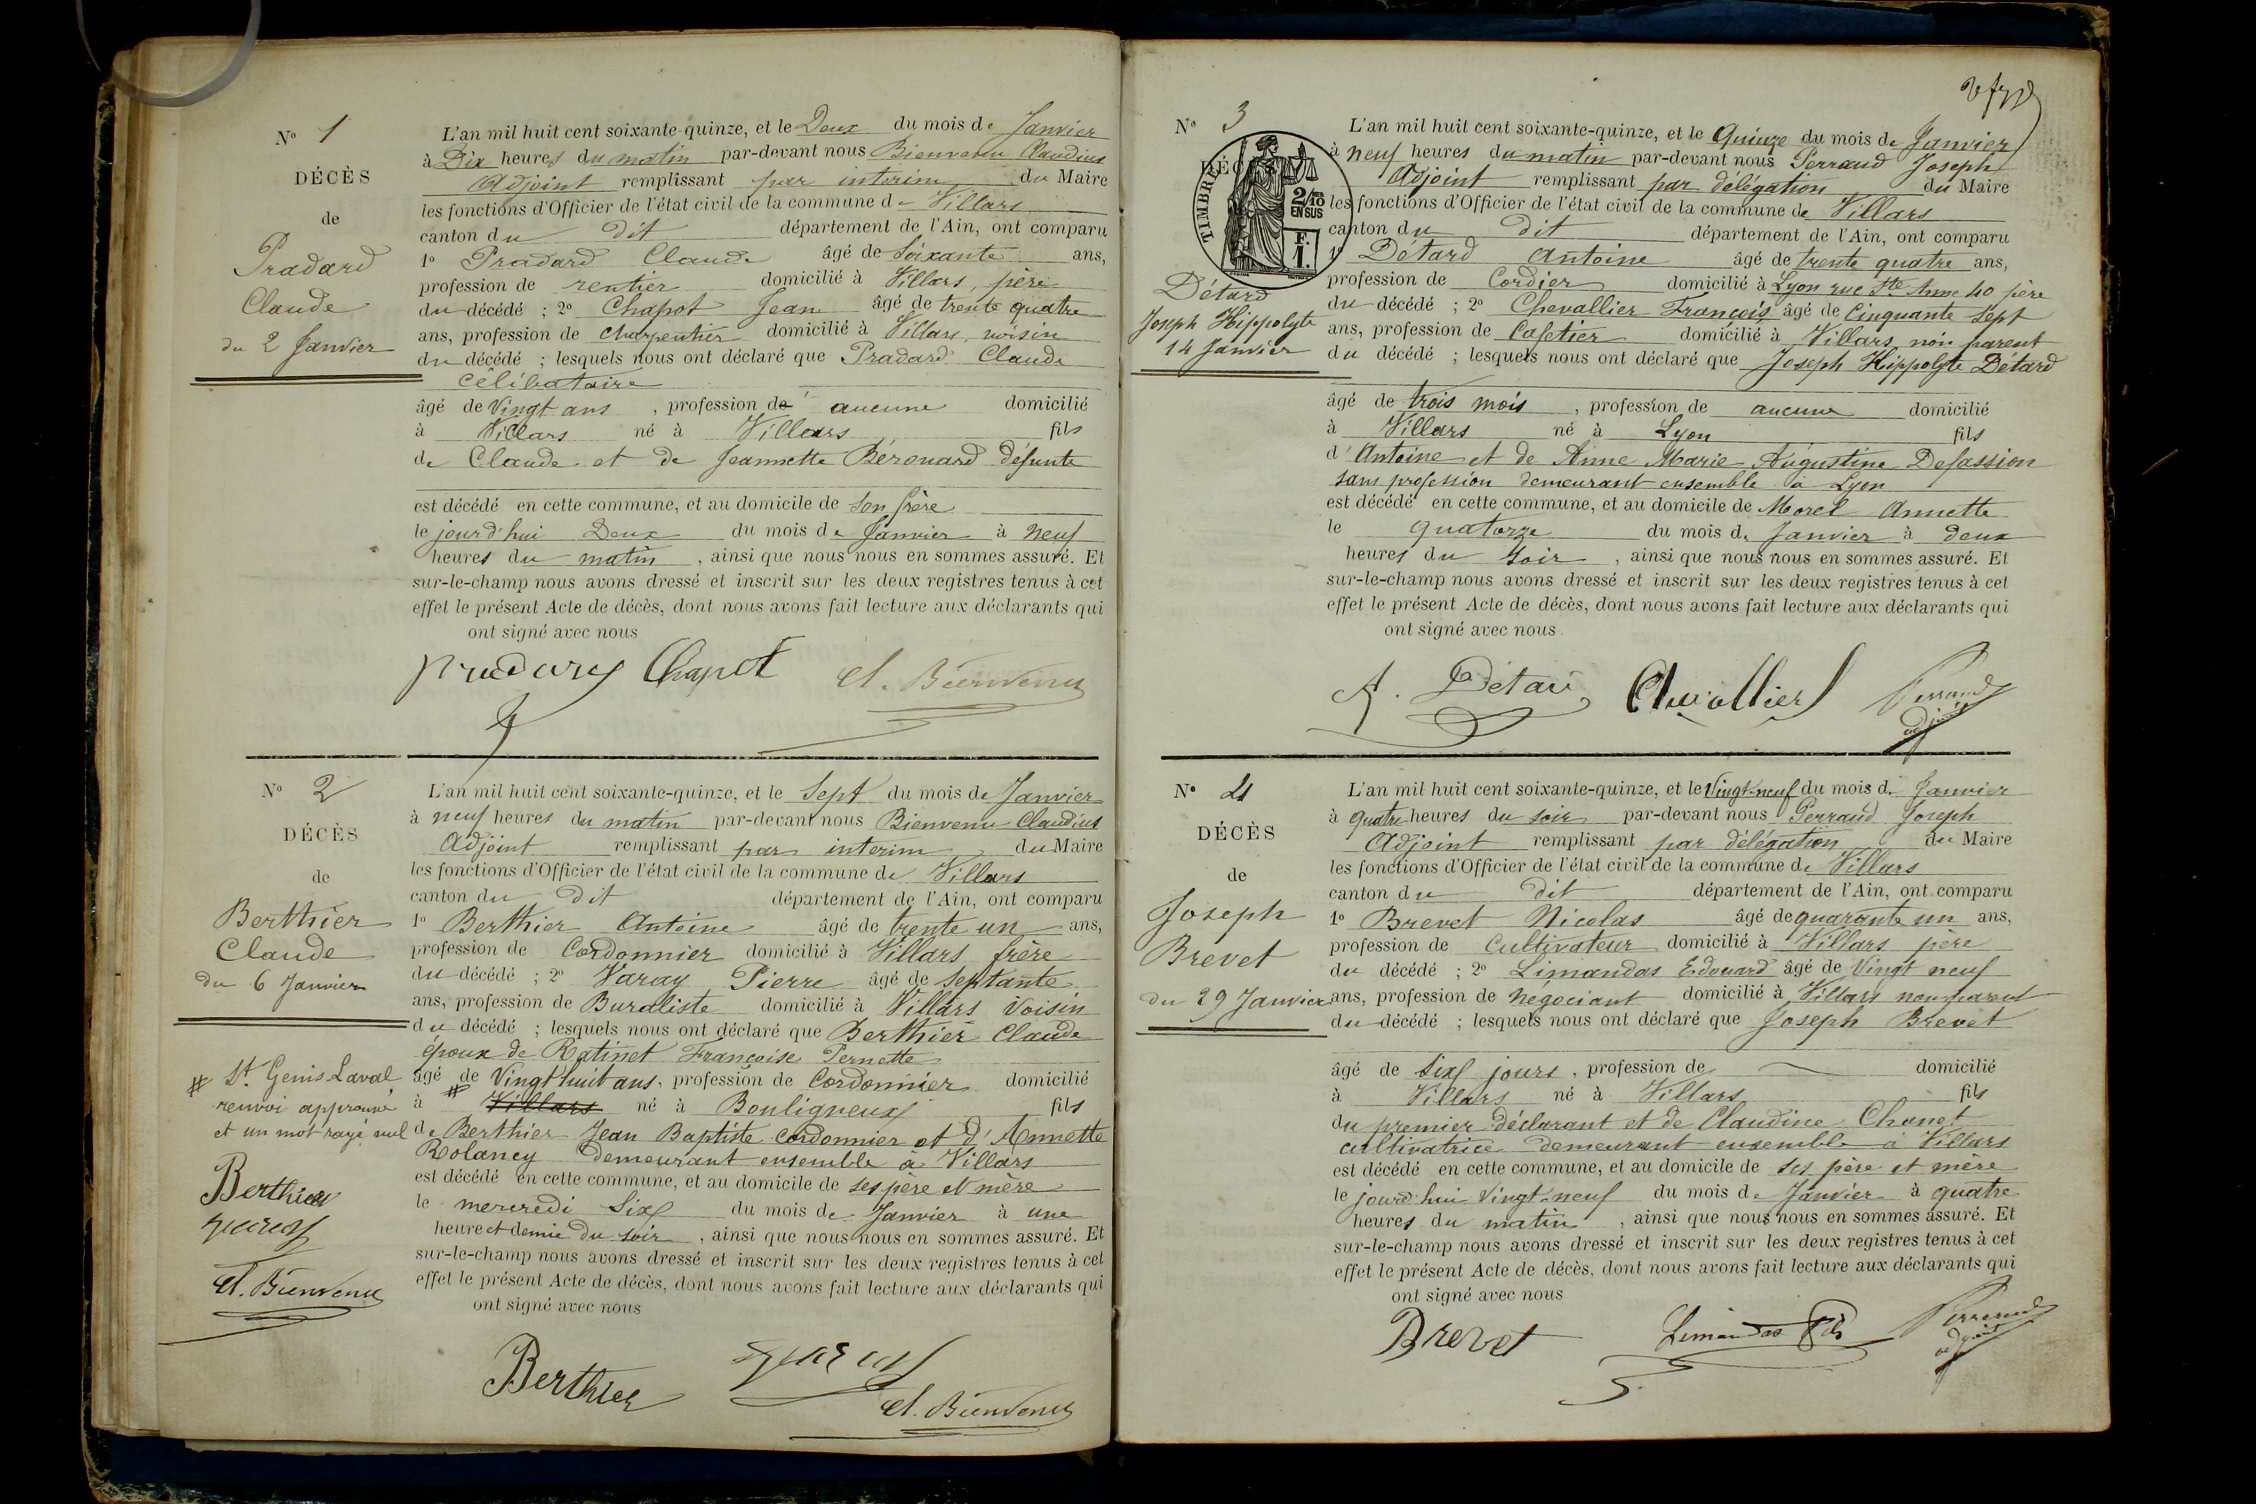 N° 1
DÉCÈS
de
Pradard
Claude
du 2 Janvier
L'an mil huit cent soixante-quinze, et le Deux du mois de Janvier
à Dix heures du matin par-devant nous Bienvenu Claudius
Adjoint remplissant par interim du Maire
les fonctions d'Officier de l'état civil de la commune de Villars
canton du dit département de l'Ain, ont comparu
1° Pradard Claude âgé de Soixante ans,
profession de rentier domicilié à Villars, père
du décédé ; 2° Chapot Jean âgé de trente quatre
ans, profession de charpentier domicilié à Villars, voisin
du décédé ; lesquels nous ont déclaré que Pradard Claude
célibataire
âgé de Vingt ans , profession de aucune domicilié
à Villars né à Villars fils
de Claude et de Jeannette Bérouard défunte
est décédé en cette commune, et au domicile de son frère
le jourd'hui Deux du mois de Janvier à neuf
heures du matin , ainsi que nous nous en sommes assuré. Et
sur-le-champ nous avons dressé et inscrit sur les deux registres tenus à cet
effet le présent Acte de décès, dont nous avons fait lecture aux déclarants qui
ont signé avec nous
Chapot Cl. Bienvenu
N° 2
DÉCÈS
de
Berthier
Claude
du 6 Janvier
# St Genis Laval
renvoi approuvé
et un mot rayé nul
Berthier
Cl. Bienvenu
L'an mil huit cent soixante-quinze, et le Sept du mois de Janvier
à neuf heures du matin par-devant nous Bienvenu Claudius
Adjoint remplissant par interim du Maire
les fonctions d'Officier de l'état civil de la commune de Villars
canton du dit département de l'Ain, ont comparu
1° Berthier Antoine âgé de trente un ans,
profession de Cordonnier domicilié à Villars frère
du décédé ; 2° Varay Pierre âgé de septante
ans, profession de Buraliste domicilié à Villars Voisin
du décédé ; lesquels nous ont déclaré que Berthier Claude
époux de Ratinet Françoise Pernette
âgé de Vingt huit ans, profession de Cordonnier domicilié
à # Villars né à Bouligneux fils
de Berthier Jean Baptiste cordonnier et d'Annette
Rolancy demeurant ensemble à Villars
est décédé en cette commune, et au domicile de ses père et mère
le mercredi Six du mois de Janvier à une
heure et demie du soir , ainsi que nous nous en sommes assuré. Et
sur-le-champ nous avons dressé et inscrit sur les deux registres tenus à cet
effet le présent Acte de décès, dont nous avons fait lecture aux déclarants qui
ont signé avec nous
Berthier
Cl. Bienvenu
N° 3
DÉC
TIMBRE
2/10
EN SUS
F.
1.
Détard
Joseph Hippolyte
14 Janvier
L'an mil huit cent soixante-quinze, et le Quinze du mois de Janvier
à neuf heures du matin par-devant nous Perraud Joseph
Adjoint remplissant par délégation du Maire
les fonctions d'Officier de l'état civil de la commune de Villars
canton du dit département de l'Ain, ont comparu
1° Détard Antoine âgé de trente quatre ans,
profession de Cordier domicilié à Lyon rue Ste Anne 40 père
du décédé ; 2° Chevallier François âgé de Cinquante sept
ans, profession de Cafetier domicilié à Villars non parent
du décédé ; lesquels nous ont déclaré que Joseph Hippolyte Détard
âgé de trois mois , profession de aucune domicilié
à Villars né à Lyon fils
d'Antoine et de Anne Marie Augustine Defassion
sans profession demeurant ensemble à Lyon
est décédé en cette commune, et au domicile de Morel Annette
le quatorze du mois de Janvier à deux
heures du soir , ainsi que nous nous en sommes assuré. Et
sur-le-champ nous avons dressé et inscrit sur les deux registres tenus à cet
effet le présent Acte de décès, dont nous avons fait lecture aux déclarants qui
ont signé avec nous.
A. Détard Chevallier Perraud
adjoint
N° 4
DÉCÈS
de
Joseph
Brevet
du 29 Janvier
L'an mil huit cent soixante-quinze, et le Vingt-neuf du mois de Janvier
à quatre heures du soir par-devant nous Perraud Joseph
Adjoint remplissant par délégation du Maire
les fonctions d'Officier de l'état civil de la commune de Villars
canton du dit département de l'Ain, ont comparu
1° Brevet Nicolas âgé de quarante un ans,
profession de Cultivateur domicilié à Villars père
du décédé ; 2° Limandas Edouard âgé de Vingt neuf
ans, profession de négociant domicilié à Villars non parent
du décédé ; lesquels nous ont déclaré que Joseph Brevet
âgé de Six jours , profession de domicilié
à Villars né à Villars fils
du premier déclarant et de Claudine Chanet
cultivatrice demeurant ensemble à Villars
est décédé en cette commune, et au domicile de ses père et mère
le jourd'hui Vingt-neuf du mois de Janvier à quatre
heures du matin , ainsi que nous nous en sommes assuré. Et
sur-le-champ nous avons dressé et inscrit sur les deux registres tenus à cet
effet le présent Acte de décès, dont nous avons fait lecture aux déclarants qui
ont signé avec nous
Brevet Limandas fils Perraud
adjoint